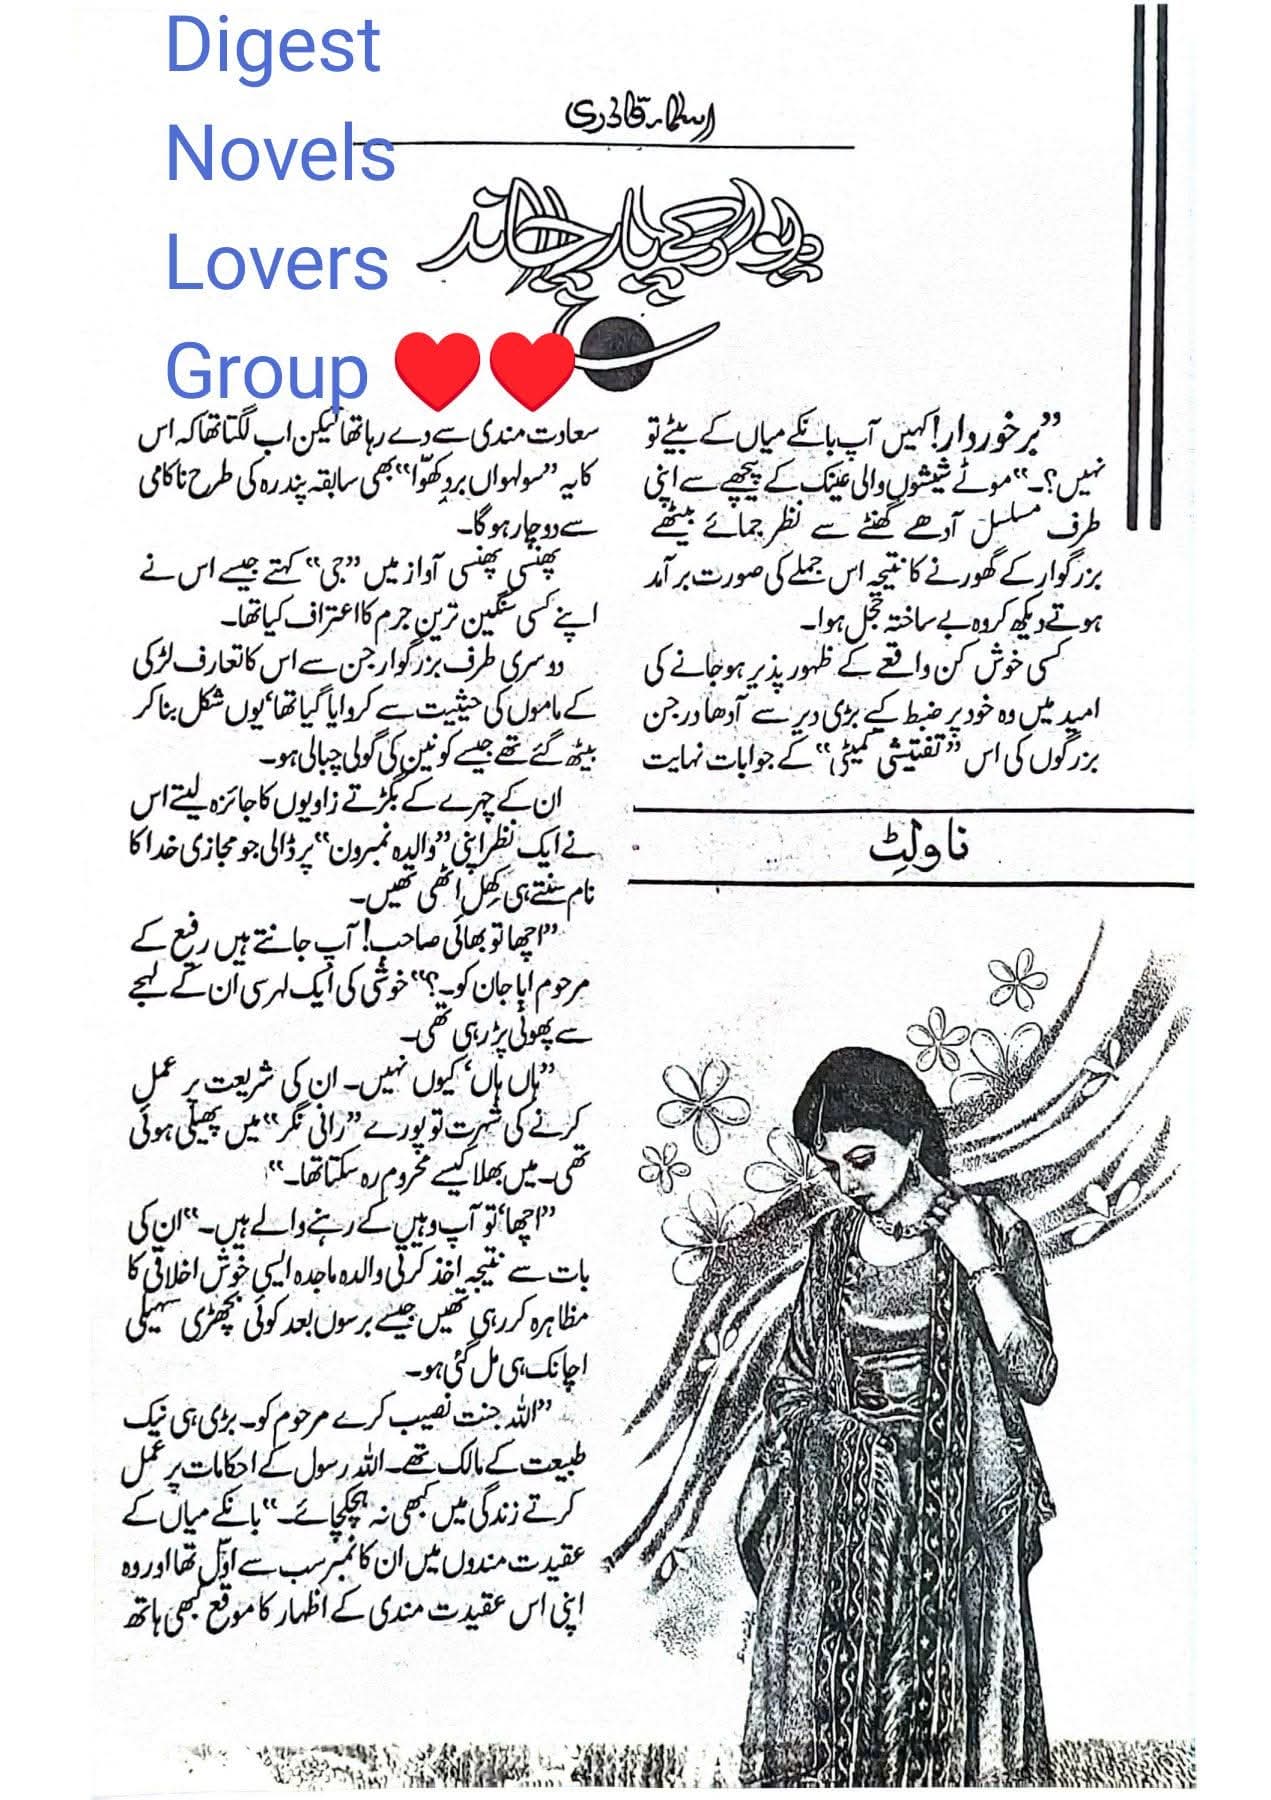 Digest
Novels
Lovers
Group ❤️❤️
اسماء قادری
دیوار کے پار چاند
”برخوردار! کہیں آپ بانکے میاں کے بیٹے تو
نہیں؟۔“ موٹے شیشوں والی عینک کے پیچھے سے اپنی
طرف مسلسل آدھے گھنٹے سے نظر جمائے بیٹھے
بزرگوار کے گھورنے کا نتیجہ اس جملے کی صورت برآمد
ہوتے دیکھ کر وہ بے ساختہ خجل ہوا۔
کسی خوش کن واقعے کے ظہور پذیر ہو جانے کی
امید میں وہ خود پر ضبط کیے بڑی دیر سے آدھا درجن
بزرگوں کی اس ”تفتیشی کمیٹی“ کے جوابات نہایت
ناولٹ
سعادت مندی سے دے رہا تھا لیکن اب لگتا تھا کہ اس
کا یہ ”سولہواں بردکھوّا“ بھی سابقہ پندرہ کی طرح ناکامی
سے دوچار ہو گا۔
پھنسی پھنسی آواز میں ”جی“ کہتے جیسے اس نے
اپنے کسی سنگین ترین جرم کا اعتراف کیا تھا۔
دوسری طرف بزرگوار جن سے اس کا تعارف لڑکی
کے ماموں کی حیثیت سے کروایا گیا تھا، یوں شکل بنا کر
بیٹھ گئے تھے جیسے کونین کی گولی چبالی ہو۔
ان کے چہرے کے بگڑتے زاویوں کا جائزہ لیتے اس
نے ایک نظر اپنی ”والدہ نمبرون“ پر ڈالی جو مجازی خدا کا
نام سنتے ہی کِھل اٹھی تھیں۔
”اچھا تو بھائی صاحب! آپ جانتے ہیں رفیع کے
مرحوم ابا جان کو۔؟“ خوشی کی ایک لہر سی ان کے لہجے
سے پھوٹی پڑ رہی تھی۔
”ہاں ہاں، کیوں نہیں۔ ان کی شریعت پر عمل
کرنے کی شہرت تو پورے ”رانی نگر“ میں پھیلی ہوئی
تھی۔ میں بھلا کیسے محروم رہ سکتا تھا۔“
”اچھا، تو آپ وہیں کے رہنے والے ہیں۔“ ان کی
بات سے نتیجہ اخذ کرتی والدہ ماجدہ ایسی خوش اخلاقی کا
مظاہرہ کر رہی تھیں جیسے برسوں بعد کوئی بچھڑی سہیلی
اچانک ہی مل گئی ہو۔
”اللہ جنت نصیب کرے مرحوم کو۔ بڑی ہی نیک
طبیعت کے مالک تھے۔ اللہ رسول کے احکامات پر عمل
کرتے زندگی میں کبھی نہ ہچکچائے۔“ بانکے میاں کے
عقیدت مندوں میں ان کا نمبر سب سے اوّل تھا اور وہ
اپنی اس عقیدت مندی کے اظہار کا موقع کبھی ہاتھ